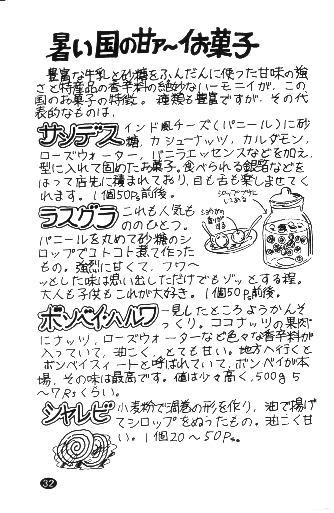 暑い国の甘ァ～いお菓子
豊富な牛乳と砂糖をふんだんに使った甘味の強
さと特産品の香辛料の絶妙なハーモニイが、この
国のお菓子の特徴。種類も豊富ですが、その代
表的なものは、
サンデス インド風チーズ(パニール)に砂
糖、カシューナッツ、カルダモン、
ローズウォーター、バニラエッセンスなどを加え、
型に入れて固めたお菓子。食べられる銀箔などを
はって店先に積まれており、目も舌も楽しませてく
れます。1個50P前後。
ラスグラ これも人気も
ののひとつ。
パニールを丸めて砂糖のシ
ロップでコトコト煮て作った
もの。強烈に甘くて、フワ～
ッとした味は思い出しただけでもゾッとする程。
大人も子供もこれが大好き。1個50P前後。
ボンベイ・ハルワ 一見したところようかんそ
っくり。ココナッツの果肉
にナッツ、ローズウォーターなど色々な香辛料が
入っていて、油こく、とても甘い。地方へ行くと
ボンベイスィートと呼ばれていて、ボンベイが本
場、その味は最高です。値は少々高く、500g 5
～7Rsくらい。
シャレビ 小麦粉で渦巻の形を作り、油で揚げ
てシロップをぬったもの。油こく甘
い。1個20～50P。
32